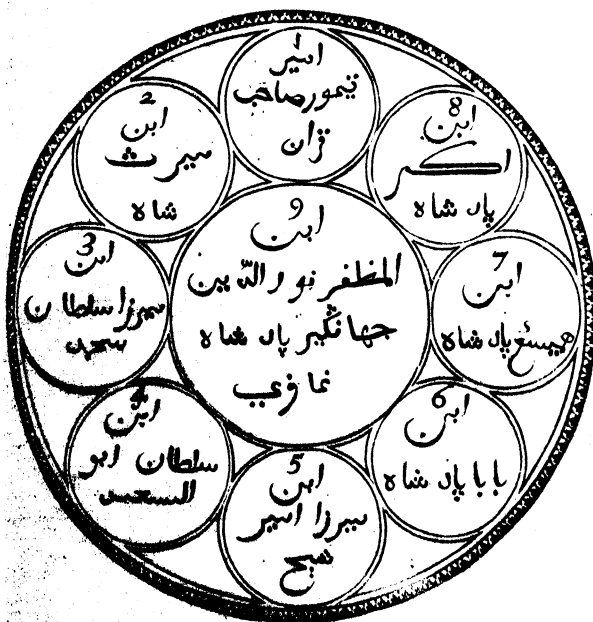 1
امير
تيمور صاحب
قران
2
ابن
ميرث
شاه
3
ابن
ميرزا سلطان
محمد
4
ابن
سلطان ابو
السعيد
5
ابن
ميرزا امير
شيخ
6
ابن
بابا پاد شاه
7
ابن
پاد شاه
8
ابن
اكبر
پاد شاه
9
ابن
المظفر نور الدين
جهانگير پاد شاه